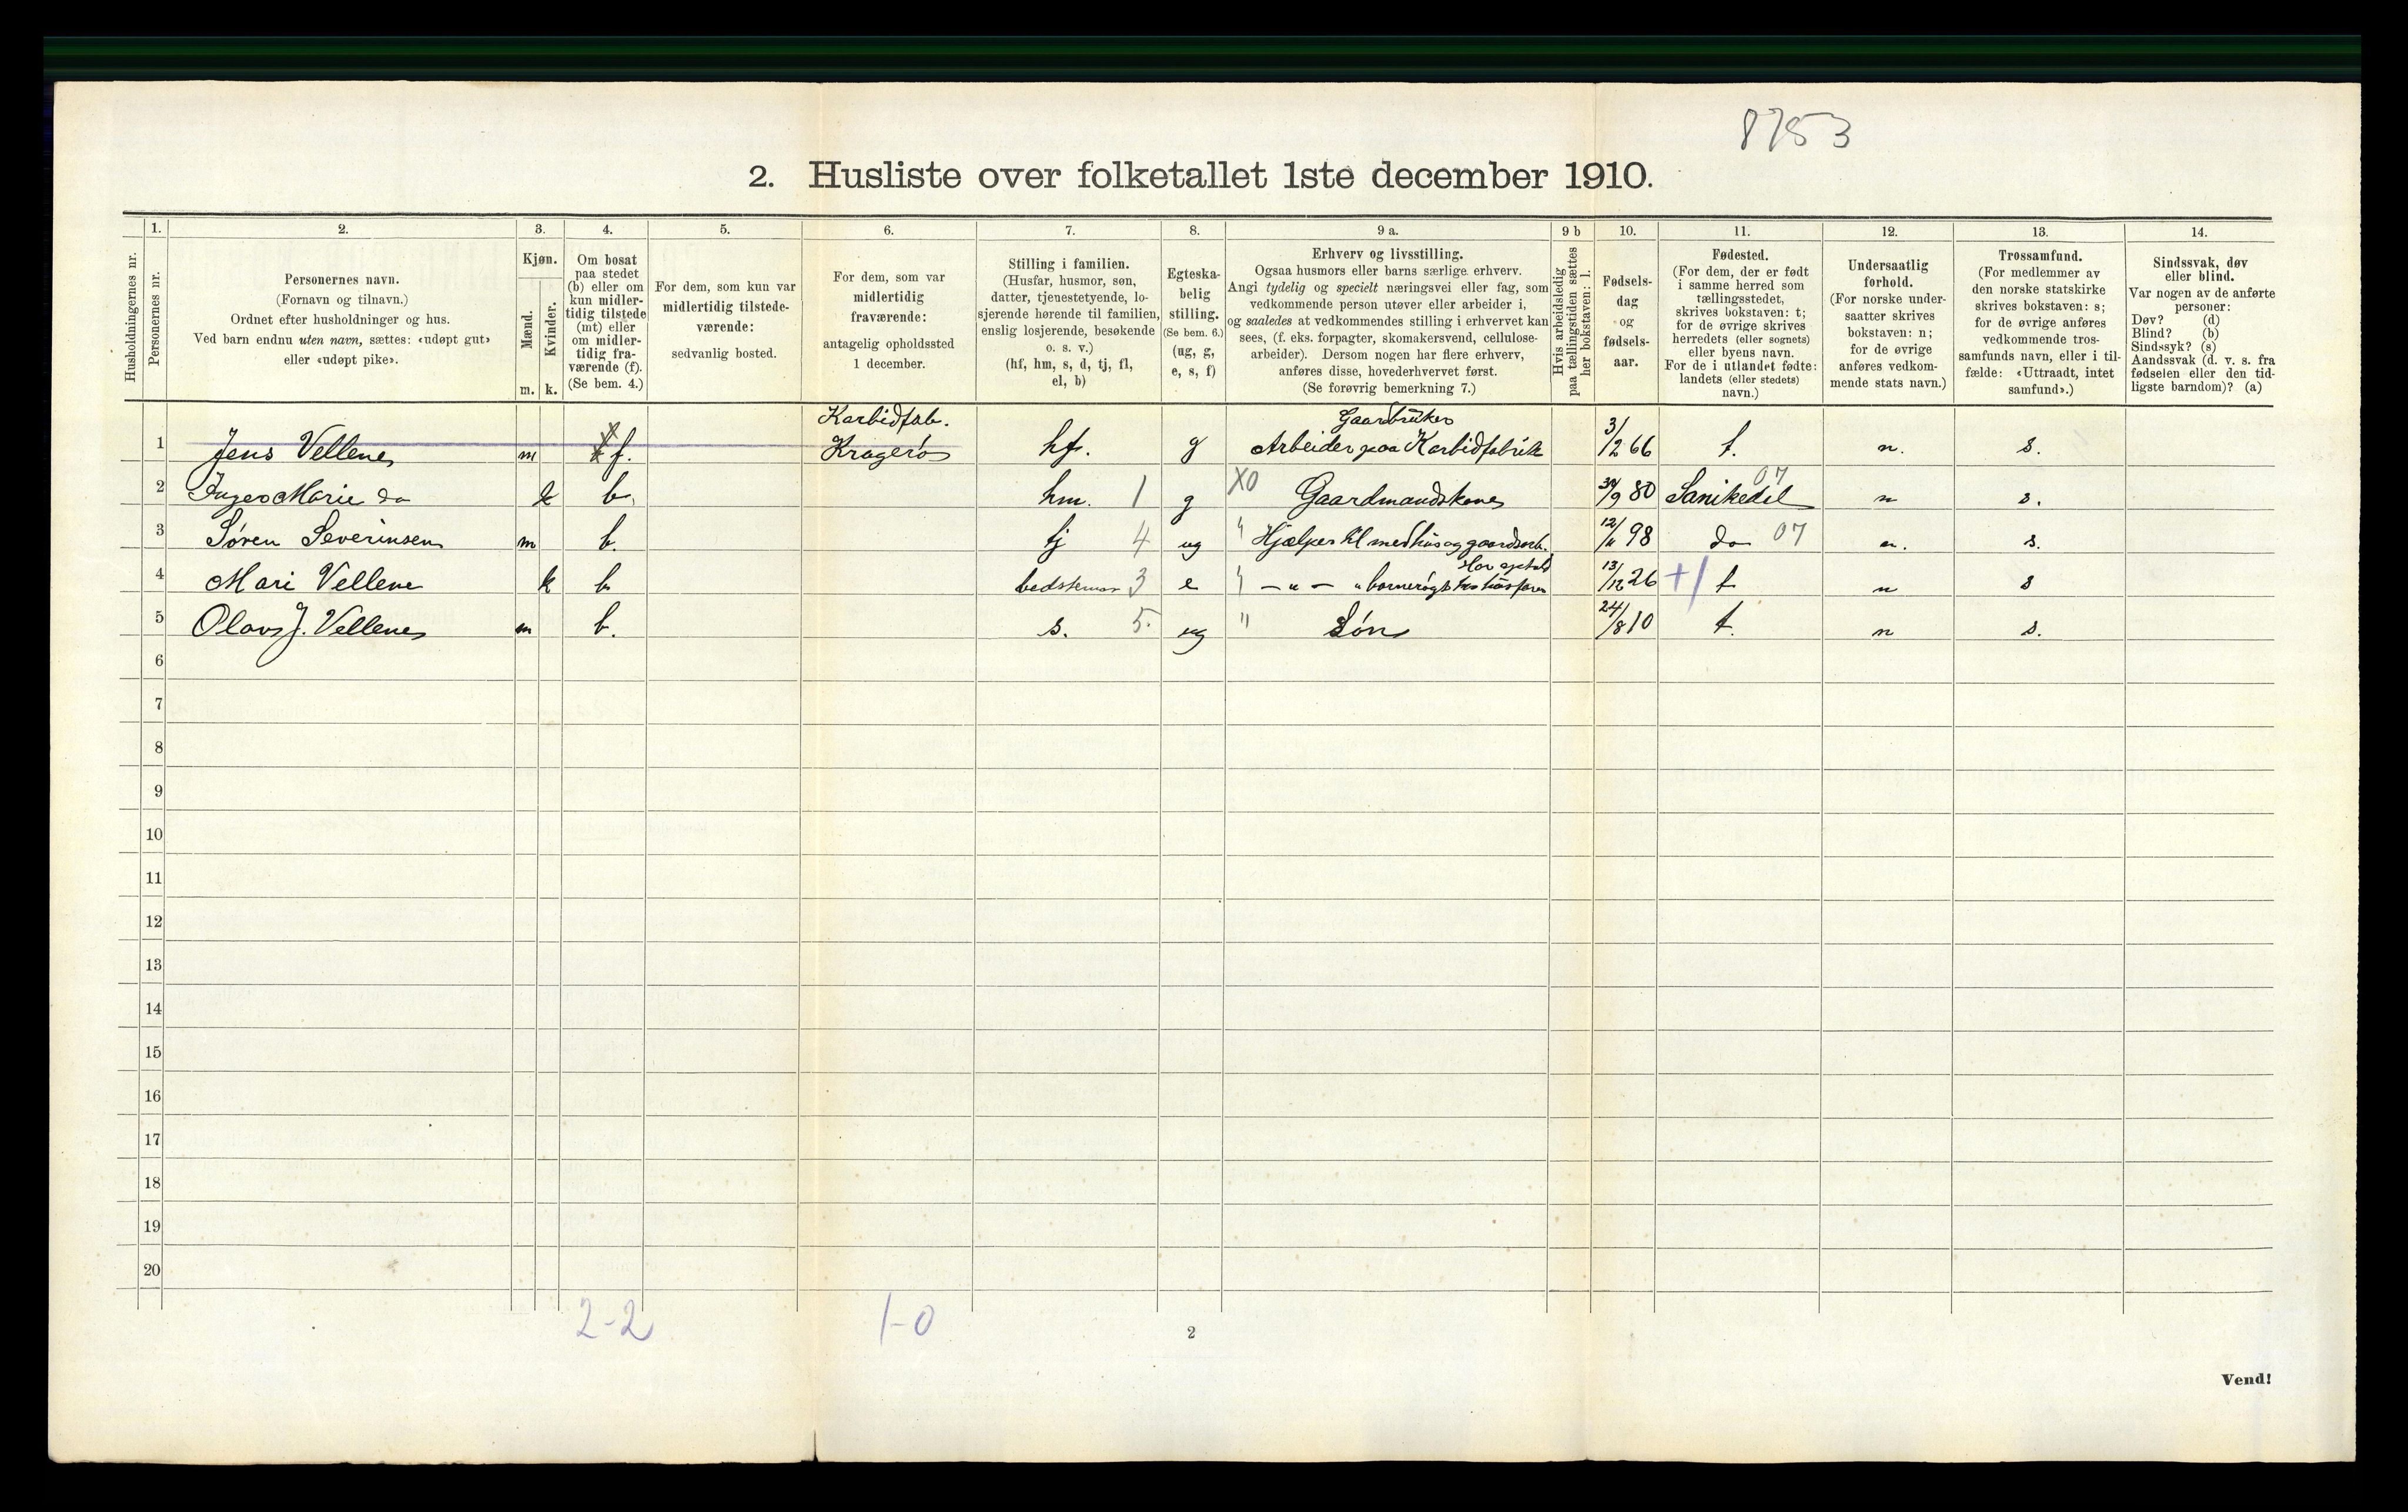 8753
2. Husliste over folketallet 1ste december 1910.
Husholdningernes nr.
1. Personernes nr.
2. Personernes navn.
(Fornavn og tilnavn.)
Ordnet efter husholdninger og hus.
Ved barn endnu uten navn, sættes: «udøpt gut»
eller «udøpt pike».
3. Kjøn.
Mænd. m.
Kvinder. k.
4. Om bosat
paa stedet
(b) eller om
kun midler-
tidig tilstede
(mt) eller
om midler-
tidig fra-
værende (f).
(Se bem. 4.)
5. For dem, som kun var
midlertidig tilstede-
værende:
sedvanlig bosted.
6. For dem, som var
midlertidig
fraværende:
antagelig opholdssted
1 december.
7. Stilling i familien.
(Husfar, husmor, søn,
datter, tjenestetyende, lo-
sjerende hørende til familien,
enslig losjerende, besøkende
o. s. v.)
(hf, hm, s, d, tj, fl,
el, b)
8. Egteska-
belig
stilling.
(Se bem. 6.)
(ug, g,
e, s, f)
9 a. Erhverv og livsstilling.
Ogsaa husmors eller barns særlige erhverv.
Angi tydelig og specielt næringsvei eller fag, som
vedkommende person utøver eller arbeider i,
og saaledes at vedkommendes stilling i erhvervet kan
sees, (f. eks. forpagter, skomakersvend, cellulose-
arbeider). Dersom nogen har flere erhverv,
anføres disse, hovederhvervet først.
(Se forøvrig bemerkning 7.)
9 b Hvis arbeidsledig
paa tællingstiden sættes
her bokstaven: l.
10. Fødsels-
dag
og
fødsels-
aar.
11. Fødested.
(For dem, der er født
i samme herred som
tællingsstedet,
skrives bokstaven: t;
for de øvrige skrives
herredets (eller sognets)
eller byens navn.
For de i utlandet fødte:
landets (eller stedets)
navn.)
12. Undersaatlig
forhold.
(For norske under-
saatter skrives
bokstaven: n;
for de øvrige
anføres vedkom-
mende stats navn.)
13. Trossamfund.
(For medlemmer av
den norske statskirke
skrives bokstaven: s;
for de øvrige anføres
vedkommende tros-
samfunds navn, eller i til-
fælde: «Uttraadt, intet
samfund».)
14. Sindssvak, døv
eller blind.
Var nogen av de anførte
personer:
Døv? (d)
Blind? (b)
Sindssyk? (s)
Aandssvak (d. v. s. fra
fødselen eller den tid-
ligste barndom)? (a)
Karbidfab. Gaarbruker
1 Jens Vellene m f. Kragerø hf. g Arbeider paa Karbidfabrik 3/2 66 t. n. s.
2 Inger Marie do k b. hm. 1 g X0 Gaardmandskone 30/9 80 Sanikedel 07 n s.
3 Søren Severinsen m b. tj 4 ug " Hjælper til med hus og gaardsarb. 12/11 98 do 07 n. s.
4 Mari Vellene k b bedstemor 3 e " — " — 13/12 26 + t n s
5 Olav J. Vellene m b. s. 5. ug " Søn 24/8 10 t. n s.
6
7
8
9
10
11
12
13
14
15
16
17
18
19
20
2-2 1-0
2
Vend!